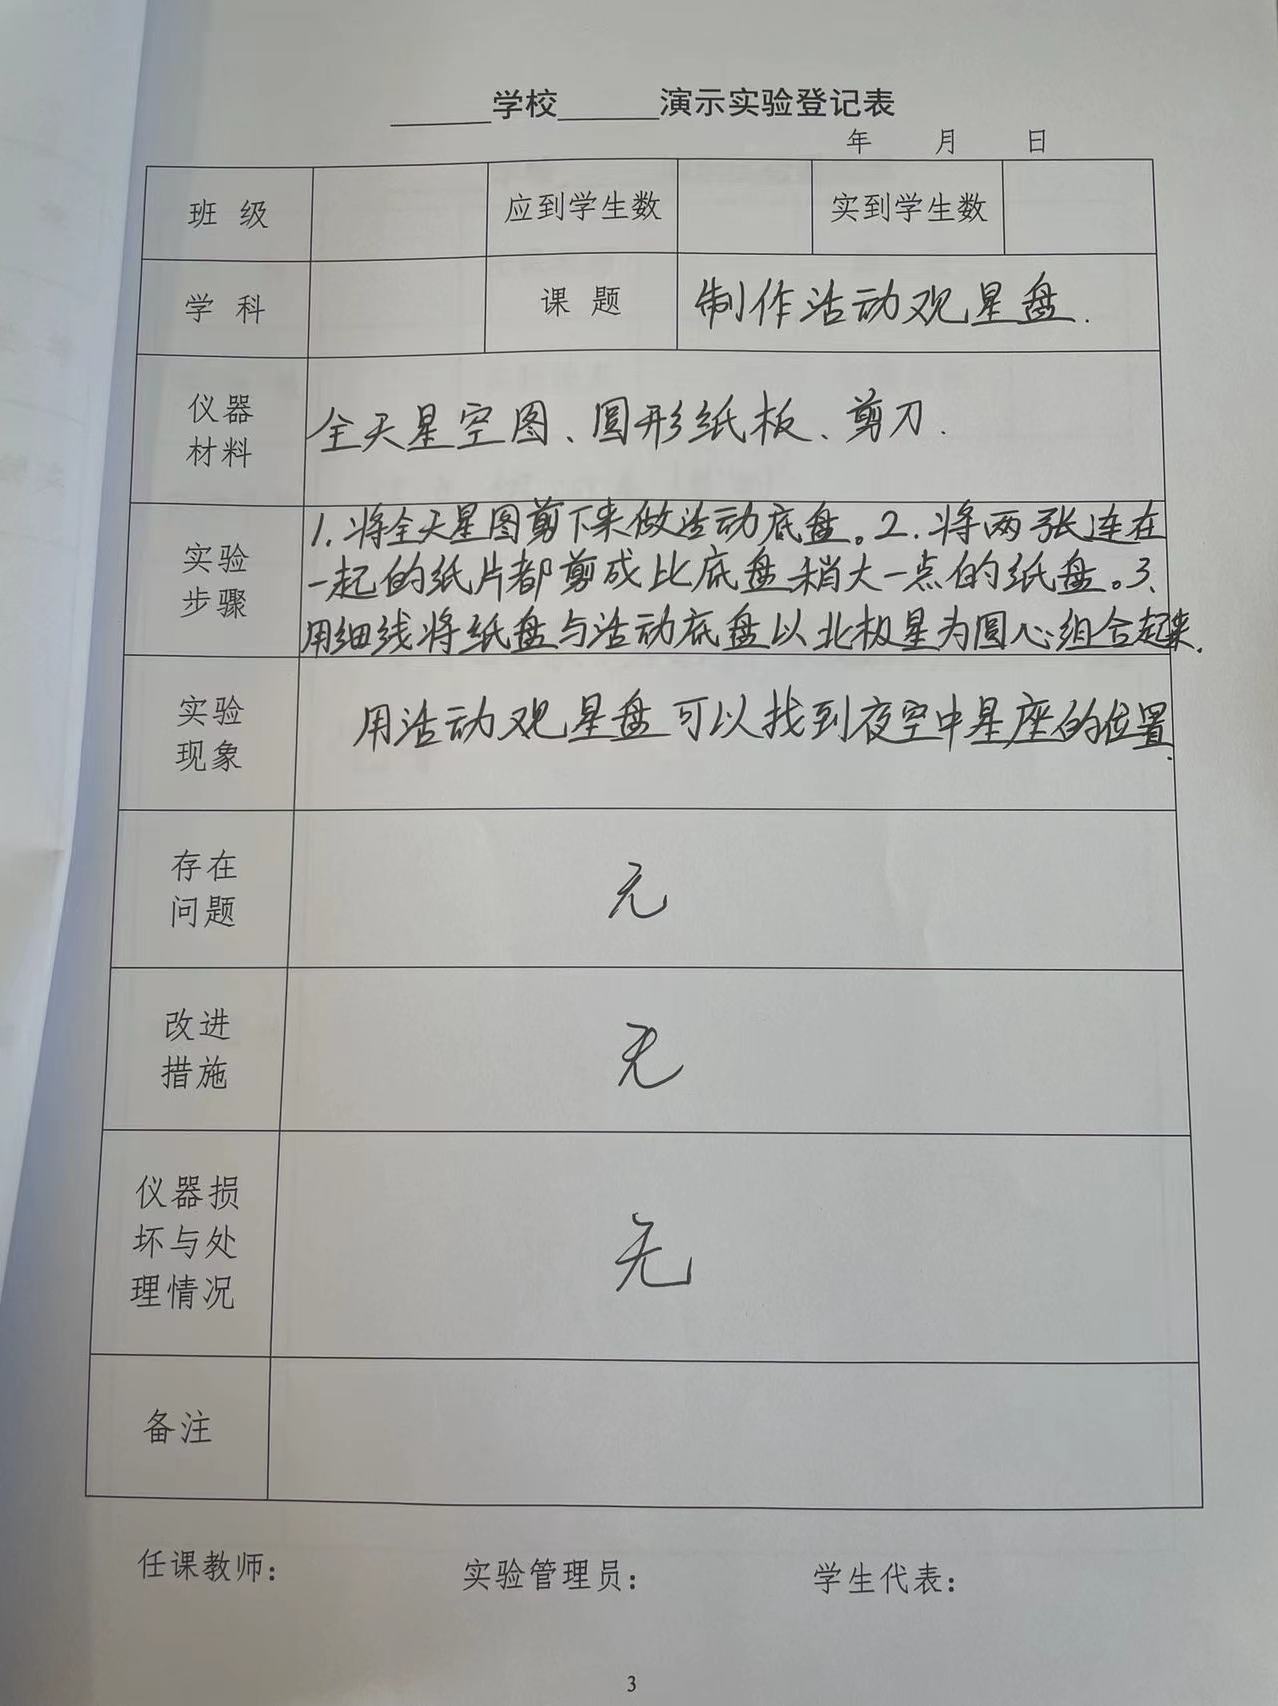 ______学校______演示实验登记表
年 月 日
班 级 应到学生数 实到学生数
学 科 课 题 制作活动观星盘.
仪器
材料
全天星空图、圆形纸板、剪刀.
实验
步骤
1.将全天星图剪下来做活动底盘。2.将两张连在
一起的纸片都剪成比底盘稍大一点的纸盘。3、
用细线将纸盘与活动底盘以北极星为圆心组合起来.
实验
现象
用活动观星盘可以找到夜空中星座的位置.
存在
问题
无
改进
措施
无
仪器损
坏与处
理情况
无
备注
任课教师： 实验管理员： 学生代表：
3